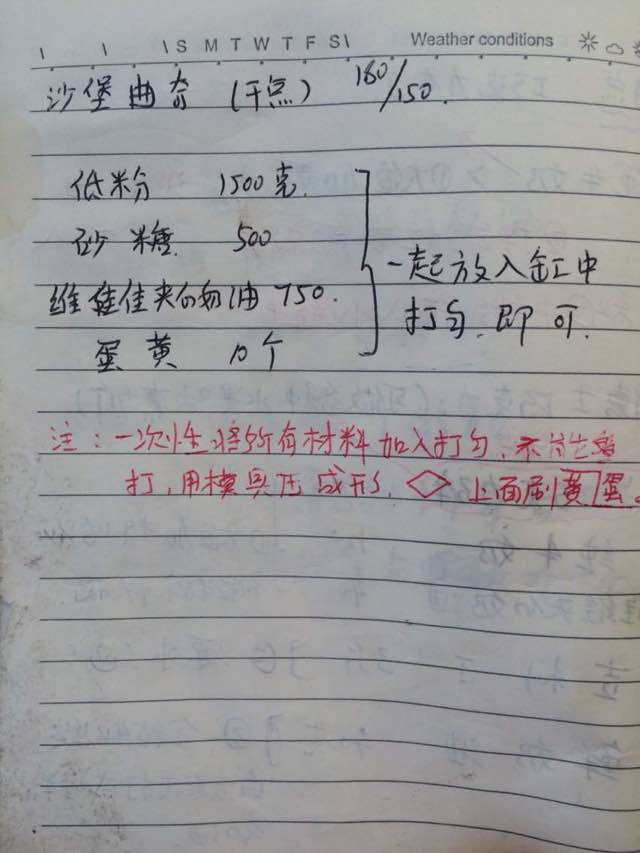 S M T W T F S Weather conditions
沙堡曲奇 (干点) 160/150.
低粉 1500克.
砂糖. 500
维佳夹的奶油 750.
蛋黄 10个
一起放入缸中
打匀.即可.
注:一次性将所有材料加入打匀,不能
打,用模具压成形, ◇ 上面刷黄蛋。